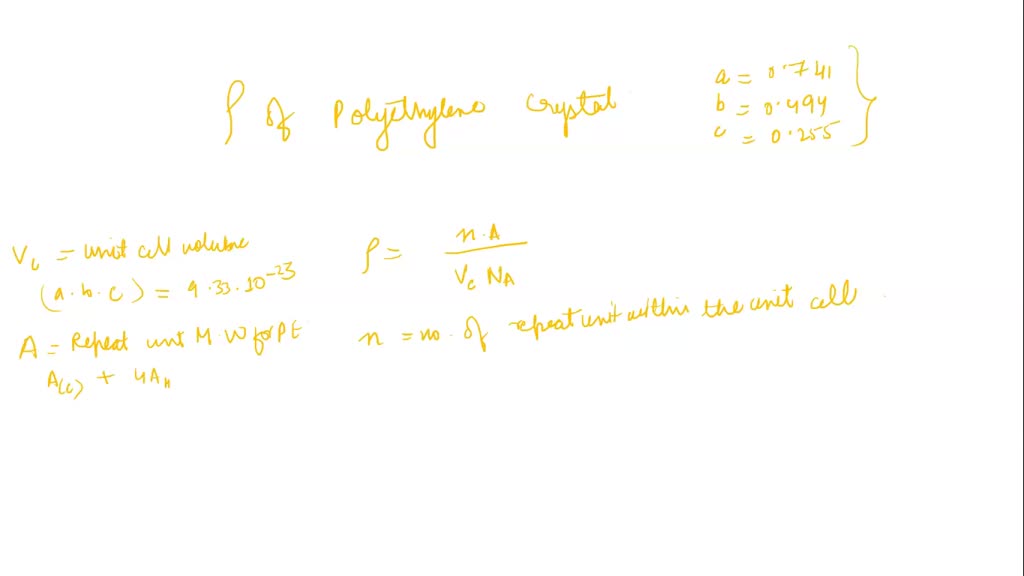 ρ of Polyethylene crystal
a = 0.741
b = 0.494
c = 0.255
Vc = unit cell volume
(a.b.c) = 9.33.10^-23
ρ = n.A / Vc NA
A = Repeat unit M.W for PE
A(c) + 4AH
n = no. of repeat unit within the unit cell